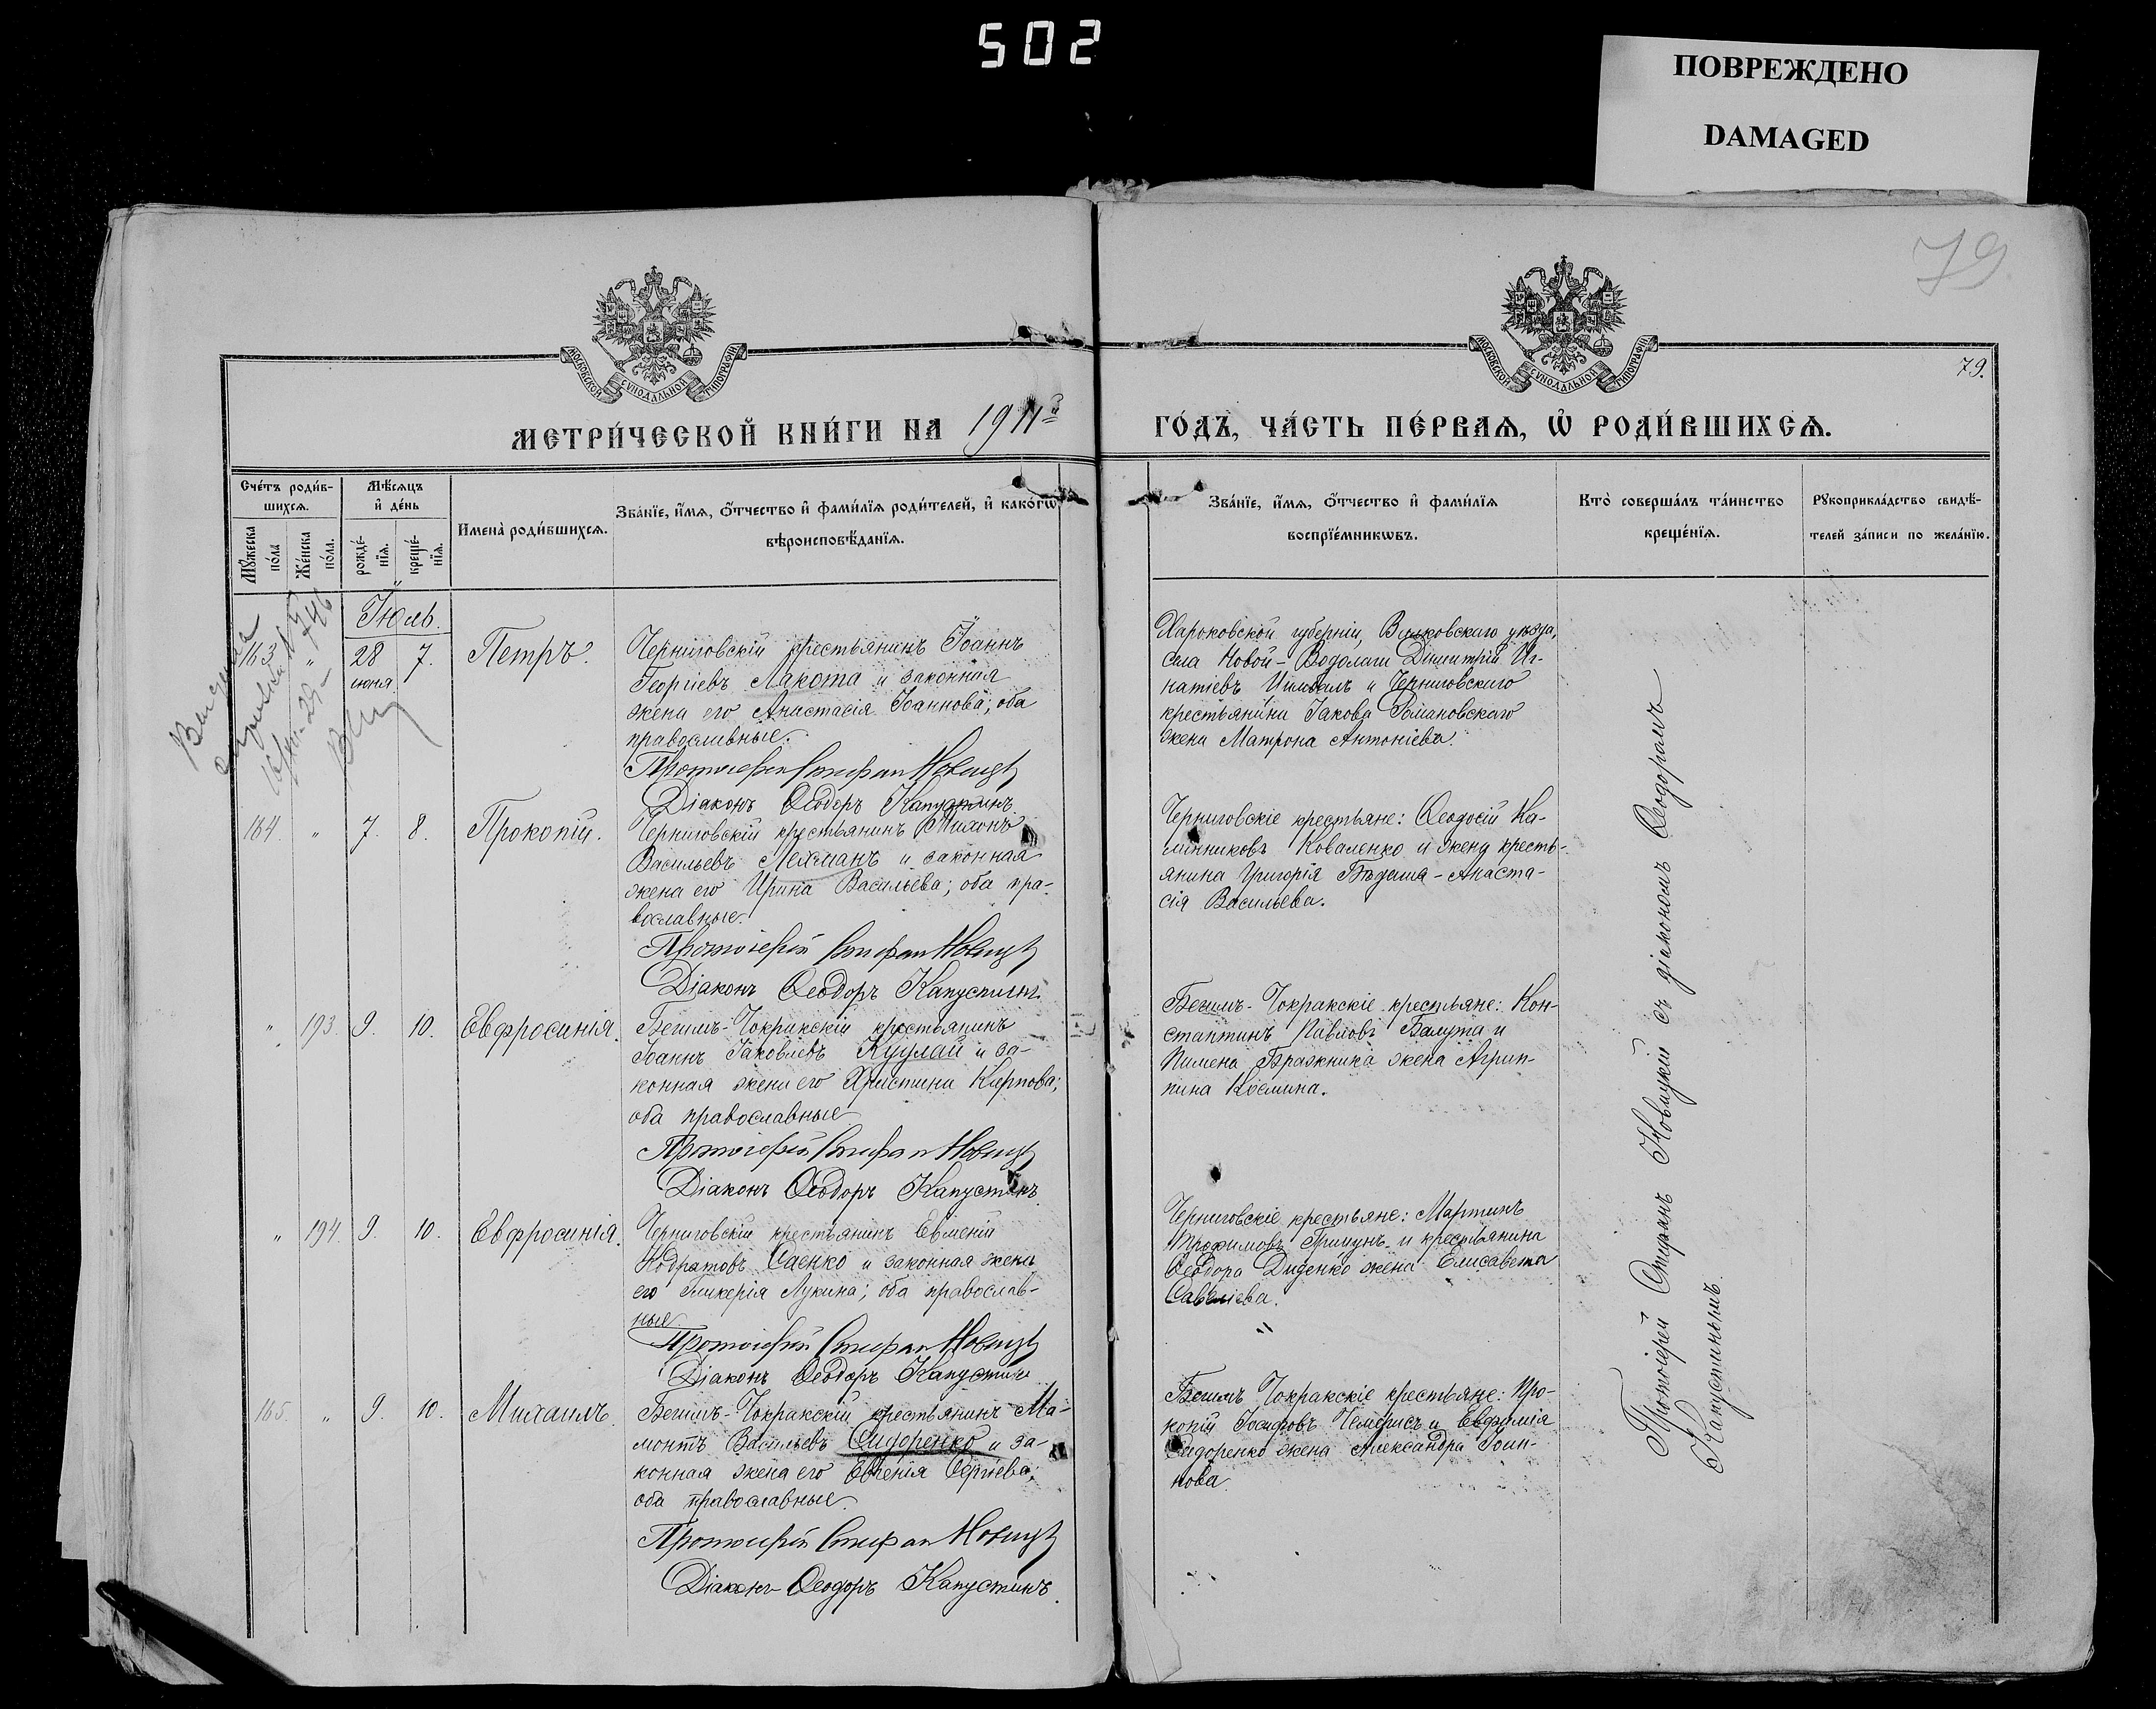 502
ПОВРЕЖДЕНО
DAMAGED
79
МОСКОВСКОЙ СѴНОДАЛЬНОЙ ТИПОГРАФІИ
МОСКОВСКОЙ СѴНОДАЛЬНОЙ ТИПОГРАФІИ
79.
МЕТРИ́ЧЕСКОЙ КНИ́ГИ НА 1911й
ГО́ДЪ, ЧА́СТЬ ПЕ́РВАѦ, Ѽ РОДИ́ВШИХСѦ.
Сче́тъ роди́в-
шихсѧ.
Мꙋ́жеска
по́ла
Же́нска
по́ла.
Мѣ́сѧцъ
и҆ де́нь
рожде́-
нїѧ.
креще́-
нїѧ.
Имена̀ роди́вшихсѧ.
Зва́нїе, и҆́мѧ, ѻ҆́тчество и҆ фами́лїѧ роди́телей, и҆ како́гѡ
вѣроисповѣ́данїѧ.
Зва́нїе, и҆́мѧ, ѻ҆́тчество и҆ фами́лїѧ
воспрїе́мникѡвъ.
Кто̀ соверша́лъ та́инство
креще́нїѧ.
Рꙋкоприкла́дство свидѣ́-
телей за́писи по жела́нїю.
Іюль.
163 " 28 июня 7. Петръ.
Черниговскій крестьянинъ Іоаннъ
Георгіевъ Лакота и законная
жена его Анастасія Іоаннова; оба
православные.
Протоіерей Стефанъ Новицкій
Діаконъ Ѳеодоръ Капустинъ
Харьковской губерніи, Валковскаго уѣзда,
села Новой-Водолаги Димитрій Иг-
натіевъ и Черниговскаго
крестьянина Іакова Романовскаго
жена Матрона Антоніева.
164. " 7. 8. Прокопій.
Черниговскій крестьянинъ Тихонъ
Васильевъ Лехманъ и законная
жена его Ирина Васильева; оба пра-
вославные.
Протоіерей Стефанъ Новицкій
Діаконъ Ѳеодоръ Капустинъ
Черниговскіе крестьяне: Ѳеодосій Ка-
линниковъ Коваленко и жена кресть-
янина Григорія Бѣдаша - Анаста-
сія Васильева.
" 193. 9. 10. Евфросинія.
Бегимъ-Чокракскій крестьянинъ
Іоаннъ Іаковлевъ Куулай и за-
конная жена его Христина Карпова;
оба православные
Протоіерей Стефанъ Новицкій
Діаконъ Ѳеодоръ Капустинъ
Бегимъ-Чокракскіе крестьяне: Кон-
стантинъ Павловъ Балута и
Пимена Бражника жена Агрип-
пина Косьмина.
" 194. 9. 10. Евфросинія.
Черниговскій крестьянинъ Евменій
Кодратовъ Саенко и законная жена
его Гликерія Лукина; оба православ-
ные
Протоіерей Стефанъ Новицкій
Діаконъ Ѳеодоръ Капустинъ
Черниговскіе крестьяне: Мартинъ
Трофимовъ и крестьянина
Ѳеодора Диденко жена Елисавета
Савеліева.
165. " 9. 10. Михаилъ.
Бегимъ-Чокракскій крестьянинъ Ма-
монтъ Васильевъ Сидоренко и за-
конная жена его Евгенія Сергіева;
оба православные.
Протоіерей Стефанъ Новицкій
Діаконъ Ѳеодоръ Капустинъ.
Бегимъ Чокракскіе крестьяне: Про-
копій Іосифовъ Чемерисъ и Евфимія
Сидоренко жена Александра Іоан-
нова.
Протоіерей Стефанъ Новицкій съ діакономъ Ѳеодоромъ
Капустинымъ.